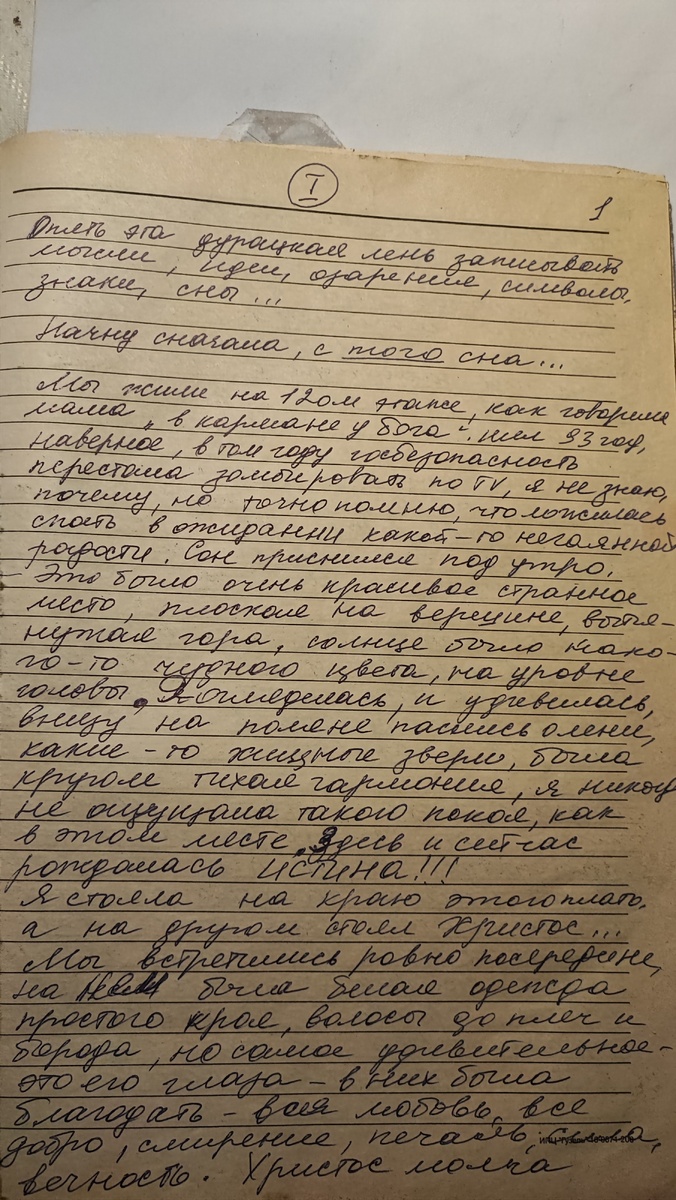 I
1
Опять эта дурацкая лень записывать
мысли, идеи, озарения, символы,
знаки, сны...
Начну сначала, с того сна...
Мы жили на 12ом этаже, как говорила
мама „в кармане у бога". шел 93 год,
наверное, в том году госбезопасность
перестала зомбировать по TV, я не знаю,
почему, но точно помню, что ложилась
спать в ожидании какой-то негаянной
радости. Сон приснился под утро.
- Это было очень красивое странное
место, плоская на вершине, вытя-
нутая гора, солнце было како-
го-то чудного цвета, на уровне
головы. Я огляделась, и удивилась,
внизу на поляне паслись олени,
какие-то хищные звери, была
кругом тихая гармония, я никогд
не ощущала такого покоя, как
в этом месте. Здесь и сейчас
рождалась истина!!!
Я стояла на краю этого плато,
а на другом стоял Христос...
Мы встретились ровно посередине,
на нем была белая одежда
простого кроя, волосы до плеч и
борода, но самое удивительное-
это его глаза - в них была
благодать - вся любовь, все
добро, смирение, печаль, сила,
вечность. Христос молча